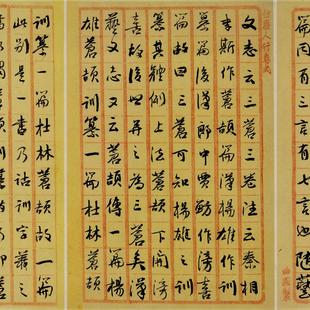 篇有三言有七言如陸藝
文志云三蒼三卷注云秦相
李斯作蒼頡篇漢揚雄作訓
纂篇後漢郎中賈魴作滂喜
篇故曰三蒼可知揚雄之訓
纂其體例上法蒼頡下開滂
喜故後世并之為三蒼矣漢
藝文志又云蒼頡傳一篇揚
雄蒼頡訓纂一篇杜林蒼頡
訓纂一篇杜林蒼頡故一篇
此別是一書乃詁訓字義之